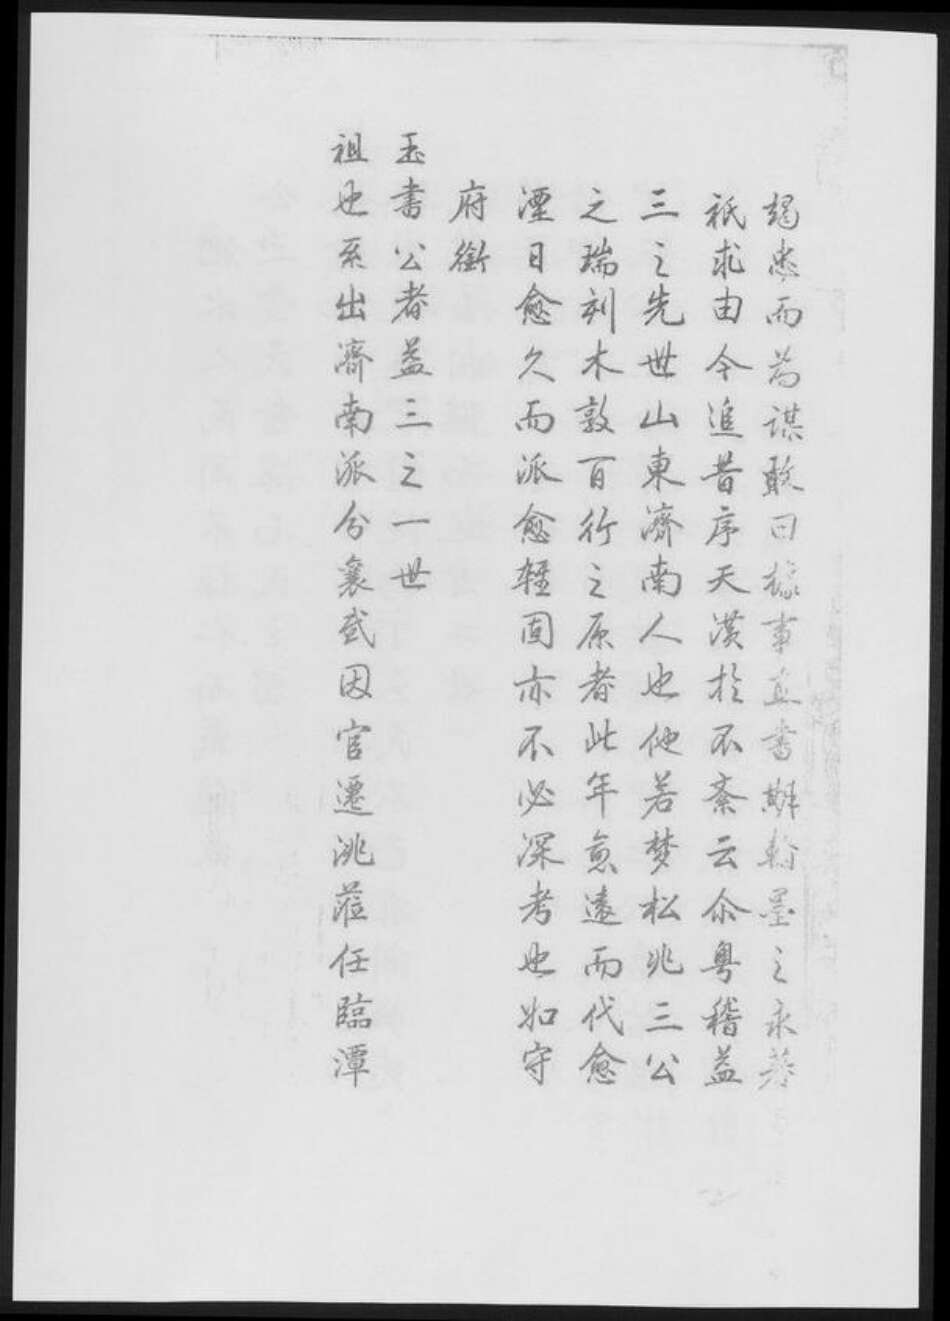 竭忠而為謀敢曰據事直書斯翰墨之永
祇求由今追昔序天潢於不紊云尒粵稽益
三之先世山東濟南人也他若梦松兆三公
之瑞刻木敦百行之原者此年愈遠而代愈
湮日愈久而派愈輕固亦不必深考也如守
府銜
玉書公者益三之一世
祖也系出濟南派分襄武因官遷洮蒞任臨潭